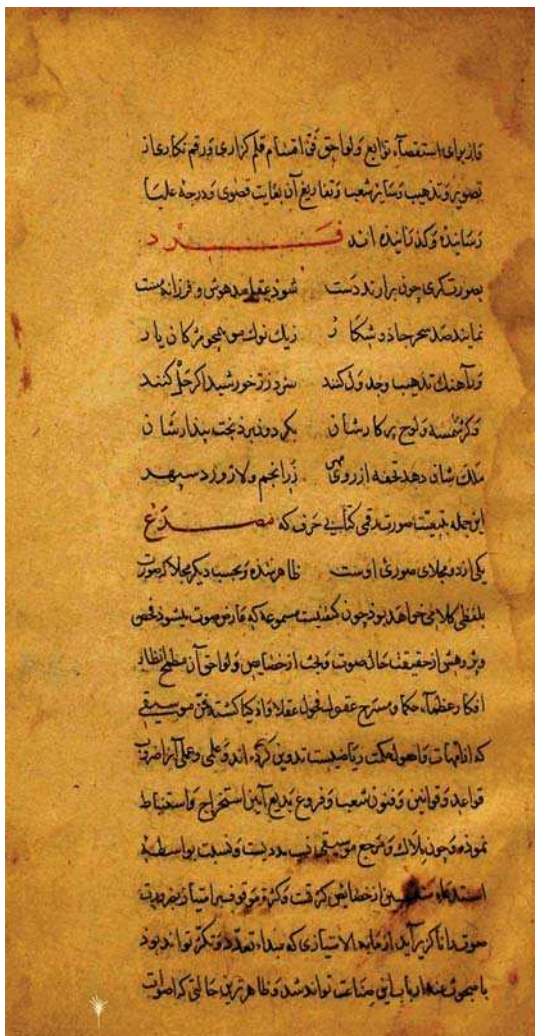 و از برای استقصاء توابع و لواحق فن اقسام قلم کزاری و رقم نکاری از
تصویر و تذهیب و سایر شعب و تفاریع آن بغایت قصوی و درجه علیا
رسانیده و کذرانیده اند فرد
بصورتکری چون برارند دست شود عقل مدهوش و فرزانه مست
نمایند صد سحر جادو شکار زیک نوک مو همچو مژکان یار
ور آهنک تذهیب و جدول کنند سزد زر خورشید اکر حل کنند
و کر شمسه و لوح پرکارشان بکردون برد بخت بیدارشان
ملک شان دهد تحفه از روی مهر زر انجم و لاژورد سپهر
این جمله بتبعیت صورت رقمی کتابی حرف که مصرع
یکی از دو مجلای صوری اوست ظاهر شده و بحسب دیکر مجلا که صورت
بلفظی کلامی خواهد بود چون کیفیت مسموعه که عارض صوت میشود فحص
و پژوهش از حقیقت حال صوت و بحث از خصایص و لواحق آن مطمح انظار
افکار عظماء حکما و مسرح عقول فحول عقلا و اذکیا کشته فن موسیقی
که از امهات و اصول حکمت ریاضیست تدوین کرده اند و علمی و عملی آنرا ضروب
قواعد و قوانین و فنون شعب و فروع بدیع آیین استخراج و استنباط
نموده و چون ملاک و مرجع موسیقی نسب عددیست و نسبت بواسطه
استدعاء منتسبین از خصایص کثرت و کثرة موقوف بر امتیاز بضرورت
صوت را ناکزیر آید از مابه الامتیازی که مبداء تعدد و تکثر تواند بود
تا مبحوث عنه ارباب این صناعت تواند شد و ظاهرترین حالتی که اصوات